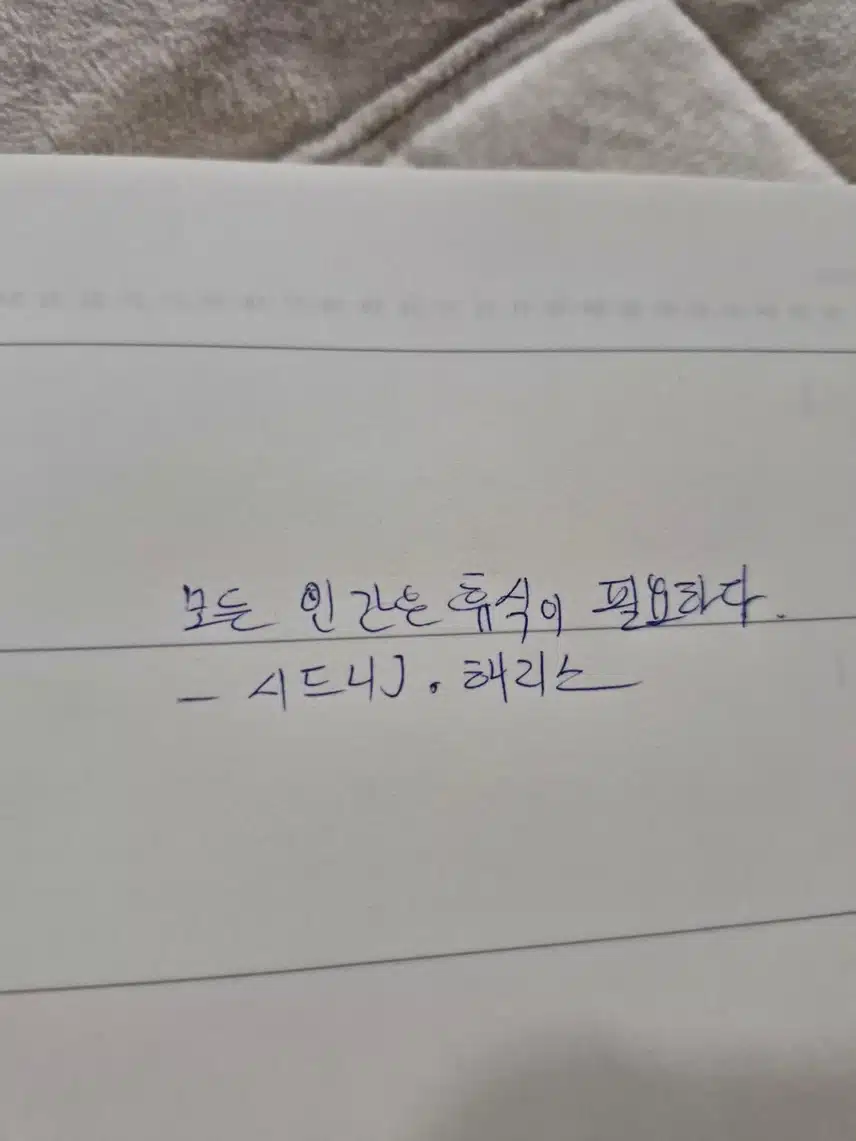 모든 인간은 휴식이 필요하다.
- 시드니J. 해리스